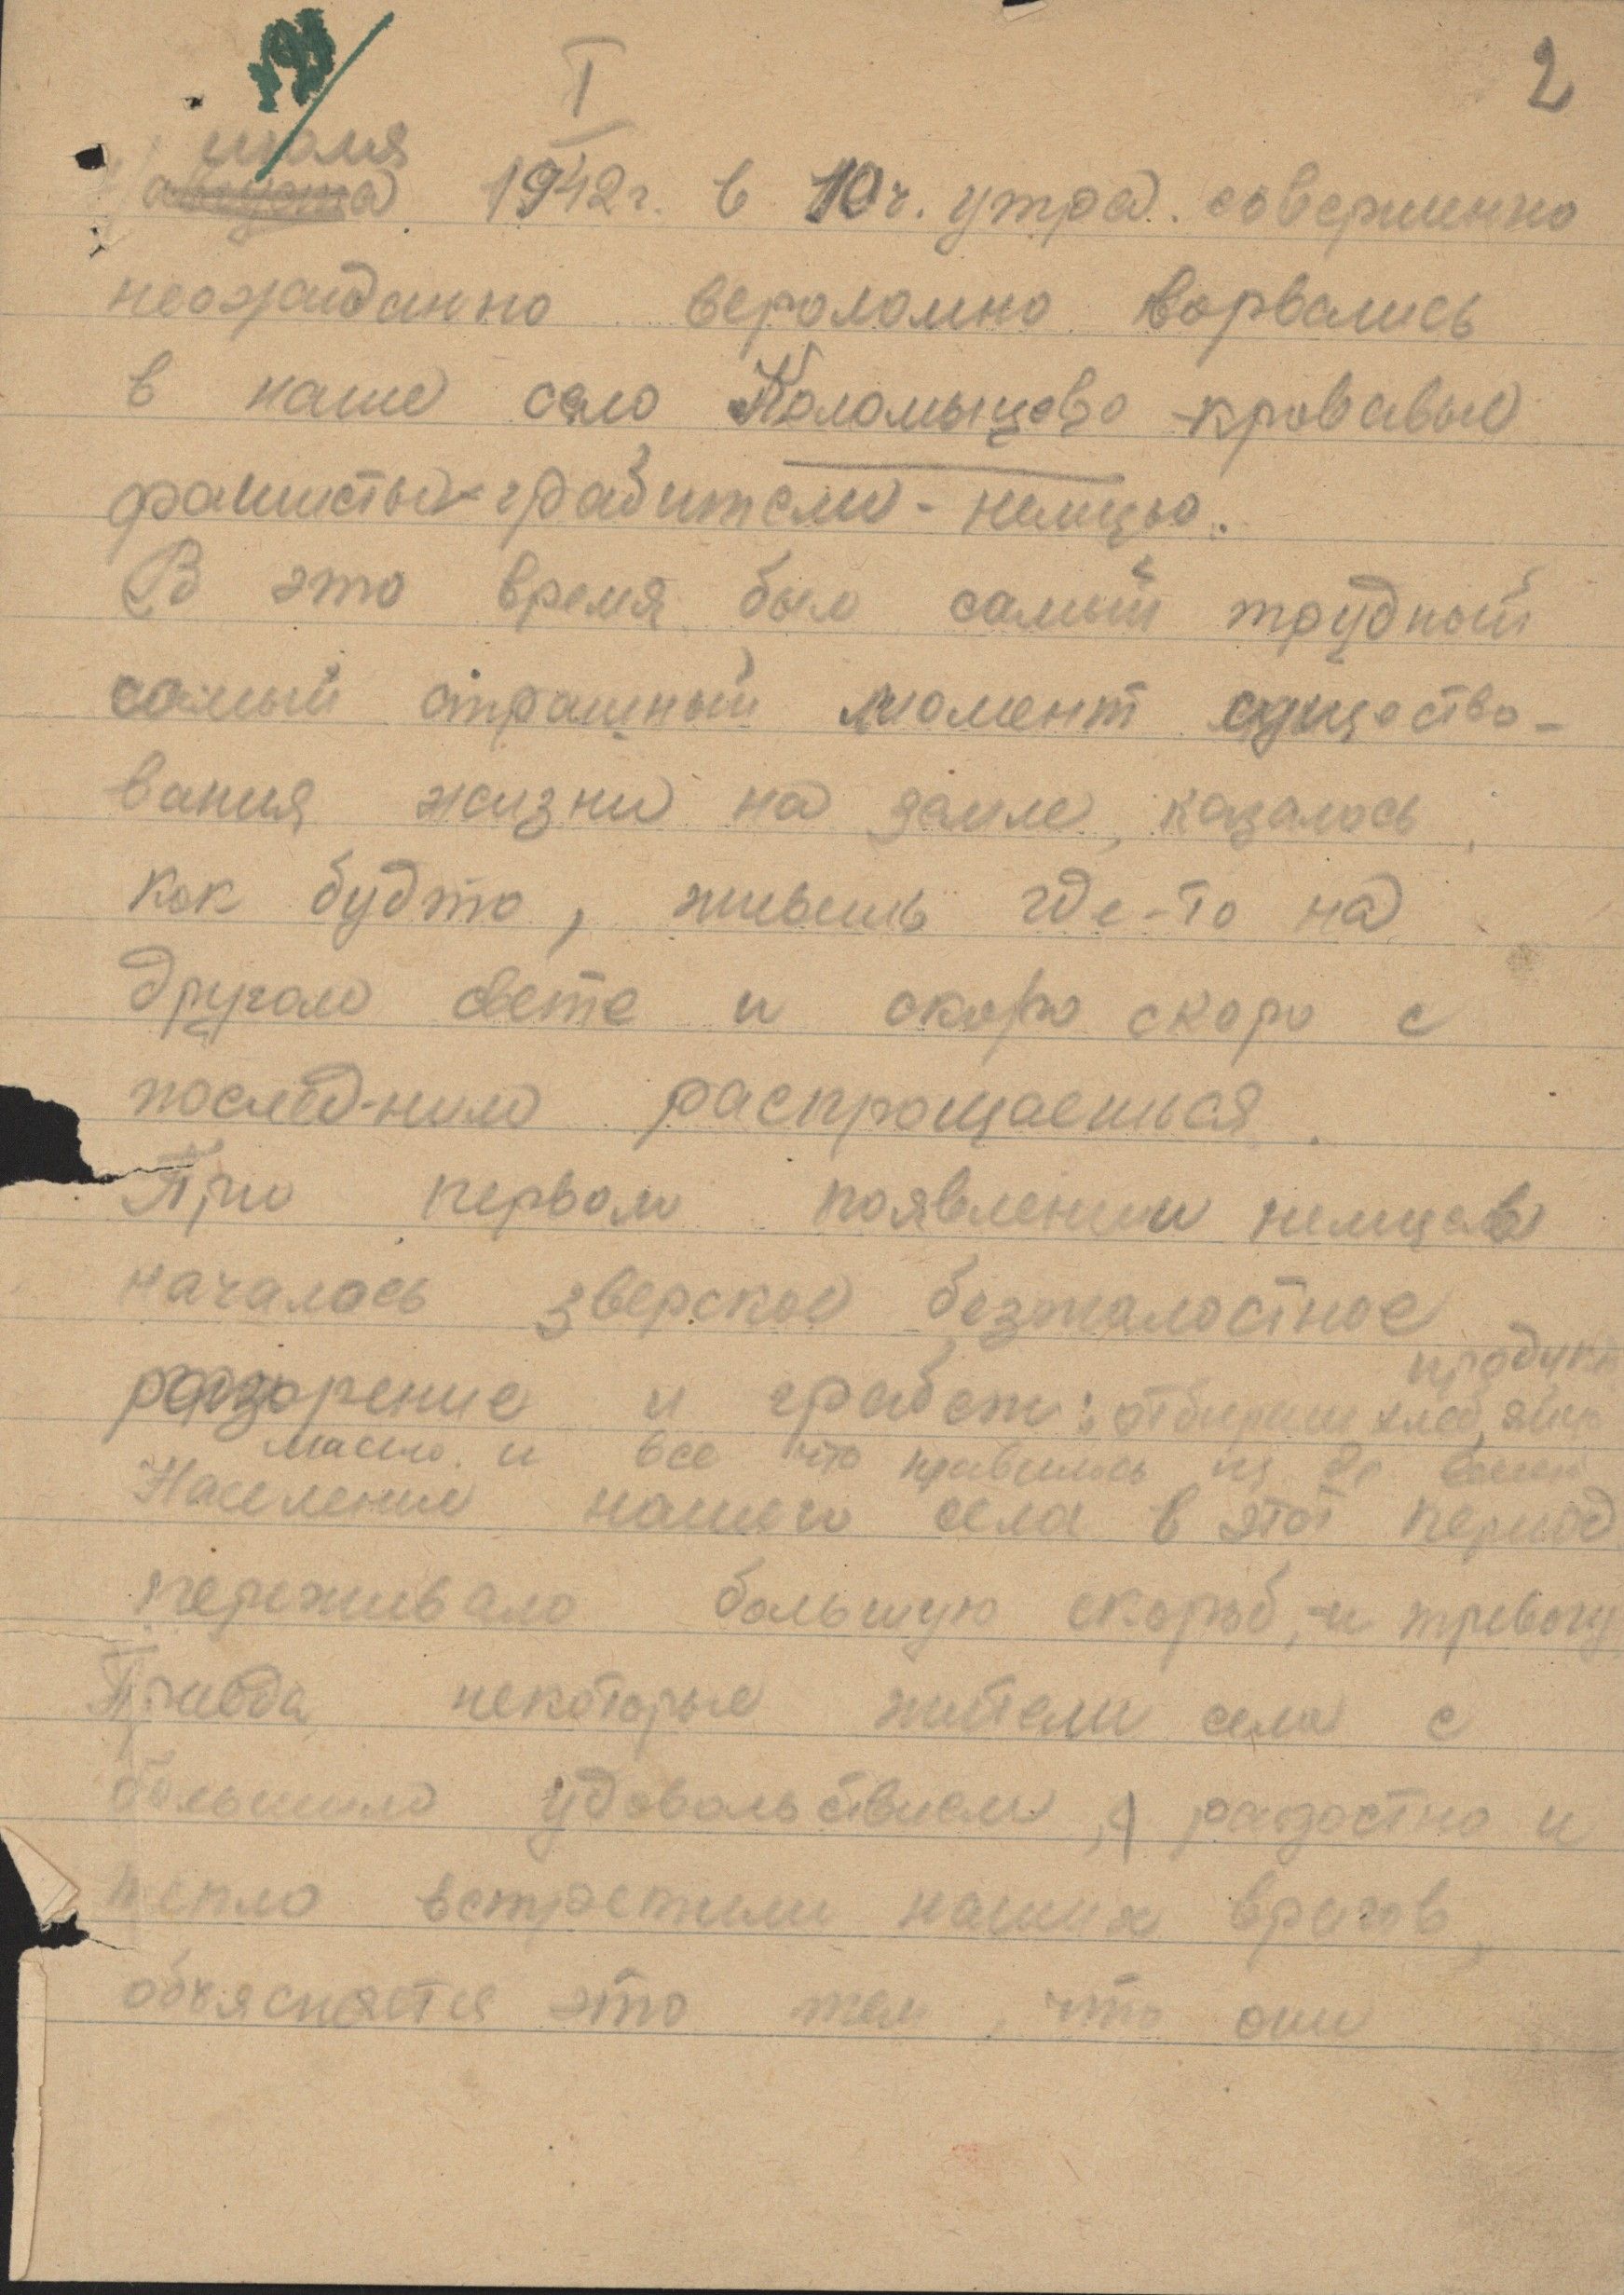 2
I
июля
августа 1942г. в 10ч. утра. совершенно
неожиданно вероломно ворвались
в наше село Коломыцево кровавые
фашисты-грабители - немцы.
В это время был самый трудный
самый страшный момент существо-
вания жизни на земле, казалось,
как будто, живешь где-то на
другом свете и скоро скоро с
последним распрощаешься.
При первом появлении немцев
началось зверское безжалостное
продукт
разорение и грабеж: отбирали хлеб, яйца
масло и все что нравилось из
Население нашего села в этот период
переживало большую скорбь, и тревогу
Правда некоторые жители села с
большим удовольствием, радостно и
тепло встретили наших врагов,
объясняется это тем, что они